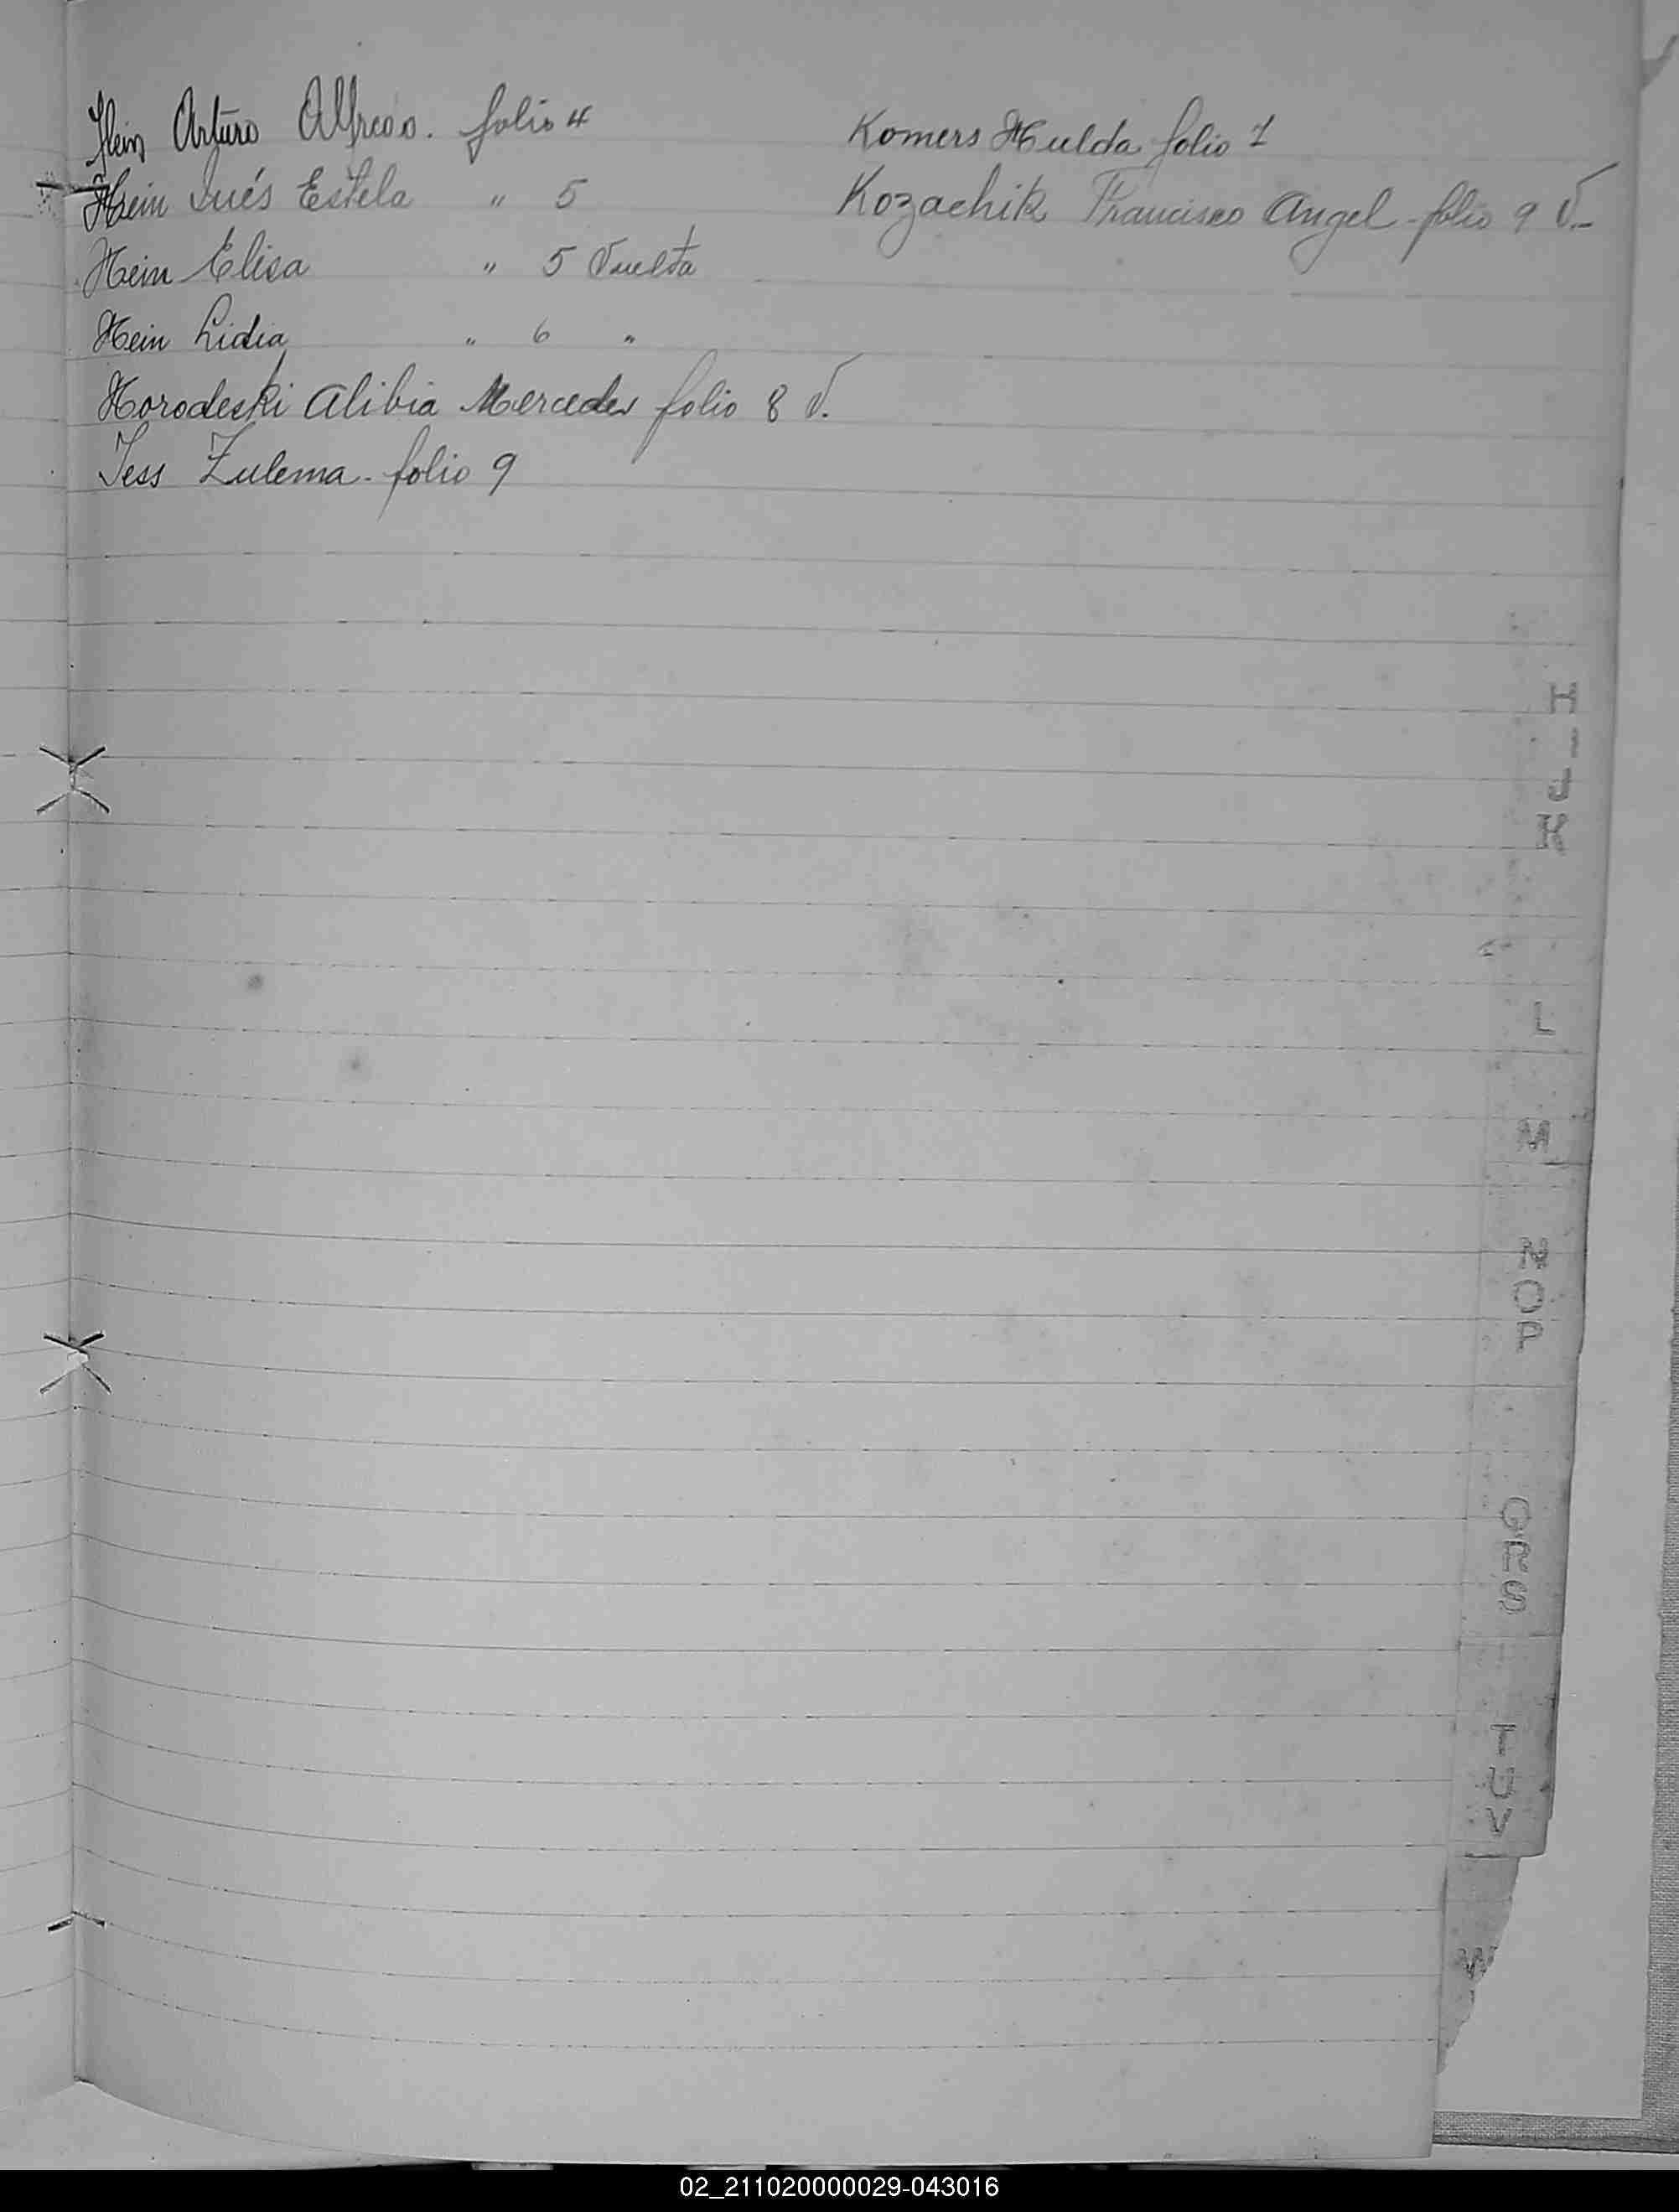 Hein Arturo Alfredo. folio 4
Hein Inés Estela " 5
Hein Elisa " 5 Vuelta
Hein Lidia " 6 "
Horodeski Alibia Mercedes folio 8 V.
Jess Zulema - folio 9
Komers Hulda folio 1
Kozachik Francisco Angel - folio 9 V.-
H I J K
L
M
N O P
Q R S
T U V
W
02_211020000029-043016